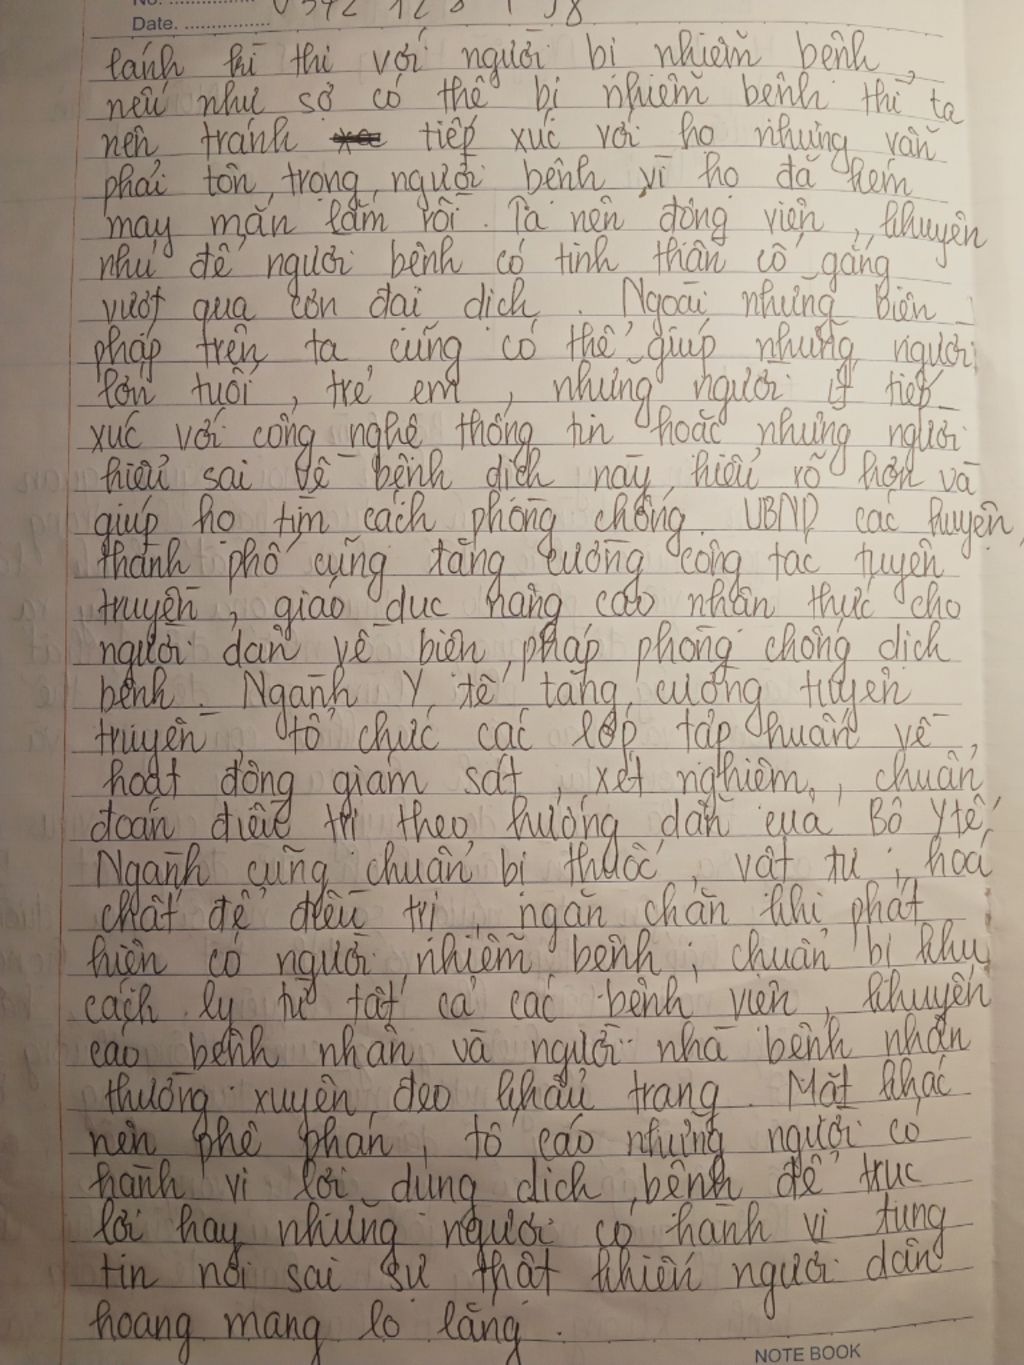 No. 0342 123 1 58
Date.
lánh kì thị với người bị nhiễm bệnh,
nếu như sợ có thể bị nhiễm bệnh thì ta
nên tránh tiếp xúc với họ nhưng vẫn
phải tôn trọng người bệnh vì họ đã kém
may mắn lắm rồi. Ta nên động viên, khuyên
nhủ để người bệnh có tinh thần cố gắng
vượt qua cơn đại dịch. Ngoài những biện
pháp trên ta cũng có thể giúp những người
lớn tuổi, trẻ em, những người ít tiếp
xúc với công nghệ thông tin hoặc những người
hiểu sai về bệnh dịch này hiểu rõ hơn và
giúp họ tìm cách phòng chống. UBND các huyện,
thành phố cũng tăng cường công tác tuyên
truyền, giáo dục nâng cao nhận thức cho
người dân về biện pháp phòng chống dịch
bệnh. Ngành Y tế tăng cường tuyên
truyền, tổ chức các lớp tập huấn về
hoạt động giám sát, xét nghiệm, chuẩn
đoán điều trị theo hướng dẫn của Bộ Y tế.
Ngành cũng chuẩn bị thuốc, vật tư, hoá
chất để điều trị, ngăn chặn khi phát
hiện có người nhiễm bệnh; chuẩn bị khu
cách ly từ tất cả các bệnh viện, khuyến
cáo bệnh nhân và người nhà bệnh nhân
thường xuyên đeo khẩu trang. Mặt khác
nên phê phán, tố cáo những người có
hành vi lợi dụng dịch bệnh để trục
lợi hay những người có hành vi tung
tin nói sai sự thật khiến người dân
hoang mang lo lắng.
NOTE BOOK